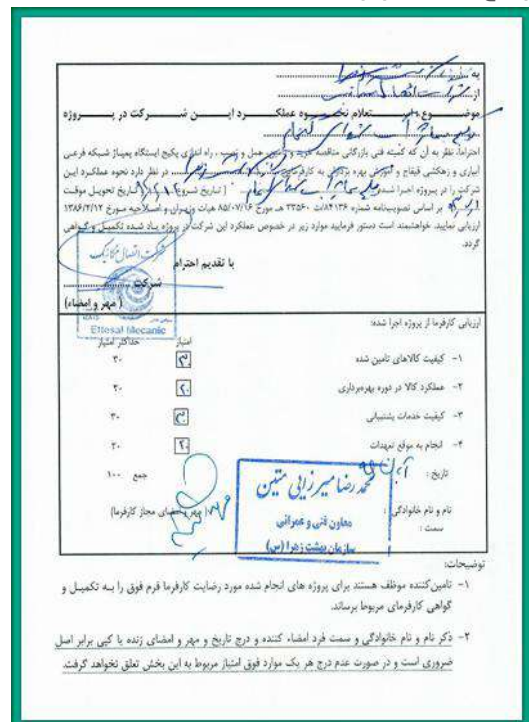 به
از شرکت اتصال مکانیک
موضـــــوع : استعلام نحـــوه عملکـــرد ایـــن شـــرکت در پـــروژه
احتراما، نظر به آن که کمیته فنی بازرگانی مناقصه خرید و تامین، حمل و نصب ، راه اندازی پکیج ایستگاه پمپاژ شبکه فرعـی
آبیاری و زهکشی فیفاج و آموزش بهره برداری به کارفرما در نظر دارد نحوه عملکرد ایـن
شرکت را در پـروژه اجـرا شـده از تاریخ شـروع تـاریخ تحویـل موقـت
بر اساس تصویبنامه شماره ۸۴۱۳۶/ت ۲۳۵۶۰ هـ مورخ ۸۵/۰۷/۱۶ هیات وزیـران و اصـلاحیه مـورخ ۱۳۸۶/۲/۱۲
ارزیابی نمایید. خواهشمند است دستور فرمایید موارد زیر در خصوص عملکرد این شرکت در پروژه یـاد شـده تکمیـل و گـواهی
گردد.
با تقدیم احترام
شرکت
( مهر و امضاء)
شرکت اتصال مکانیک
Ettesal Mecanic
ارزیابی کارفرما از پروژه اجرا شده:
امتیاز حداکثر امتیاز
۱- کیفیت کالاهای تامین شده ۳۰ ۳۰
۲- عملکرد کالا در دوره بهره‌برداری ۲۰ ۲۰
۳- کیفیت خدمات پشتیبانی ۳۰ ۳۰
۴- انجام به موقع تعهدات ۲۰ ۲۰
تاریخ : جمع ۱۰۰
نام و نام خانوادگی : مهر و امضای مجاز کارفرما)
سمت :
محمدرضا میرزایی متین
معاون فنی و عمرانی
سازمان بهشت زهرا (س)
توضیحات:
۱- تامین‌کننده موظف هستند برای پروژه های انجام شده مورد رضایت کارفرما فرم فوق را بـه تکمیـل و
گواهی کارفرمای مربوط برساند.
۲- ذکر نام و نام خانوادگی و سمت فرد امضاء کننده و درج تاریخ و مهر و امضای زنده یا کپی برابر اصل
ضروری است و در صورت عدم درج هر یک موارد فوق امتیاز مربوط به این بخش تعلق نخواهد گرفت.